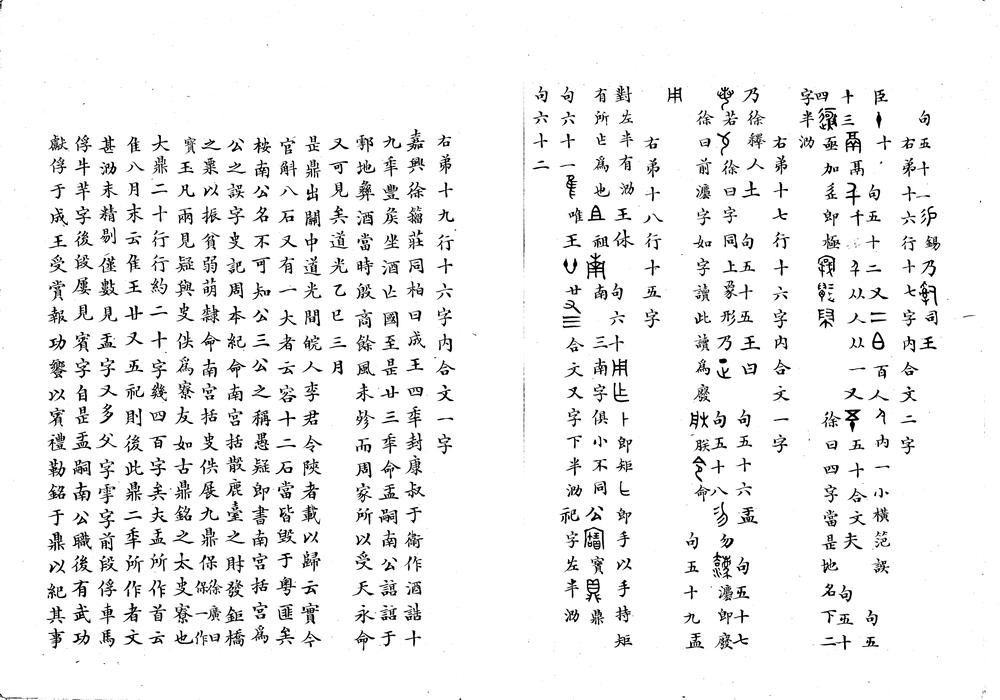 句五十一錫乃司王
右弟十六行十七字內合文二字
臣十 句五十二又二百人內一小橫范誤 句五
十三鬲千千从人从一又五十合文夫 句五十
四亟加郎極 徐曰四字當是地名下二
字半泐
右弟十七行十六字內合文一字
乃徐釋人土 句五十五王曰 句五十六盂 句五十七
若徐曰字同上彖形乃正 句五十八勿灋即廢
徐曰前灋字如字讀此讀為廢朕命 句五十九盂
用
右弟十八行十五字
對左半有泐王休 句六十用卜即矩匕即手以手持矩
有所止為也且祖南 三南字俱小不同公寶鼎
句六十一隹唯王廿又三合文又字下半泐祀字左半泐
句六十二
右弟十九行十六字內合文一字
嘉興徐籀莊同柏曰成王四年封康叔于衞作酒誥十
九年豐矦坐酒亾國至是廿三年命盂嗣南公諄諄于
鄷地彝酒當時殷商餘風未殄而周家所以受天永命
又可見矣道光乙巳三月
是鼎出關中道光間皖人李君令陝者載以歸云實今
官斛八石又有一大者云容十二石當皆毀于粵匪矣
桉南公名不可知公三公之稱愚疑即書南宮括宮為
公之誤字史記周本紀命南宮括散鹿臺之財發鉅橋
之粟以振貧弱萌隸命南宮括史佚展九鼎保徐廣曰保一作
寶玉凡兩見疑與史佚為寮友如古鼎銘之太史寮也
大鼎二十行行約二十字幾四百字矣夫盂所作首云
隹八月末云隹王廿又五祀則後此鼎二年所作者文
甚泐未精剔僅數見盂字又多父字雩字前段俘車馬
俘牛羊字後段屢見賓字自是盂嗣南公職後有武功
獻俘于成王受賞報功饗以賓禮勒銘于鼎以紀其事